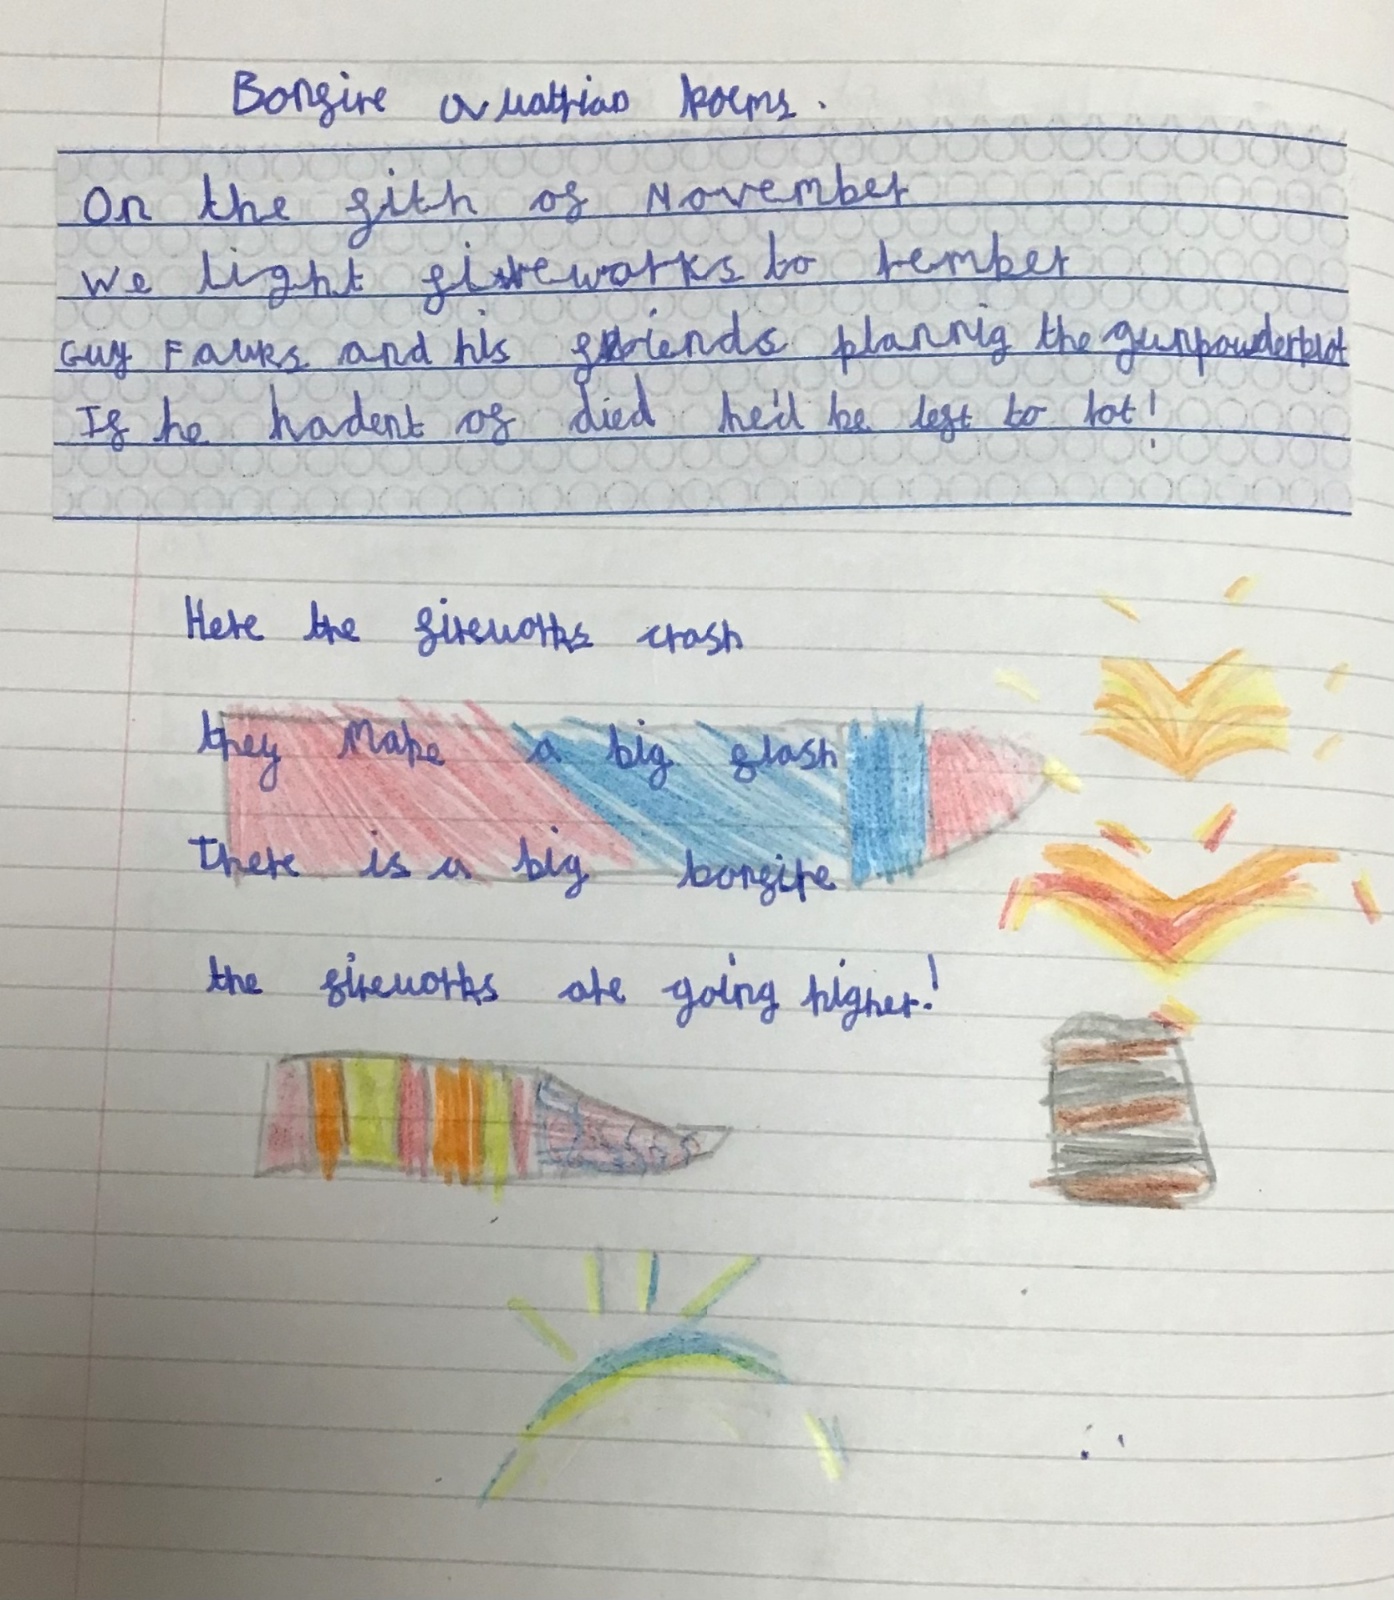 Bonfire quatrian poems.
On the fith of November
We light fireworks to rember
Guy Fawks and his friends plannig the gunpowderplot
If he hadent of died he'd be left to rot!
Here the fireworks crash
they Make a big flash
There is a big bonfire
the fireworks are going higher!